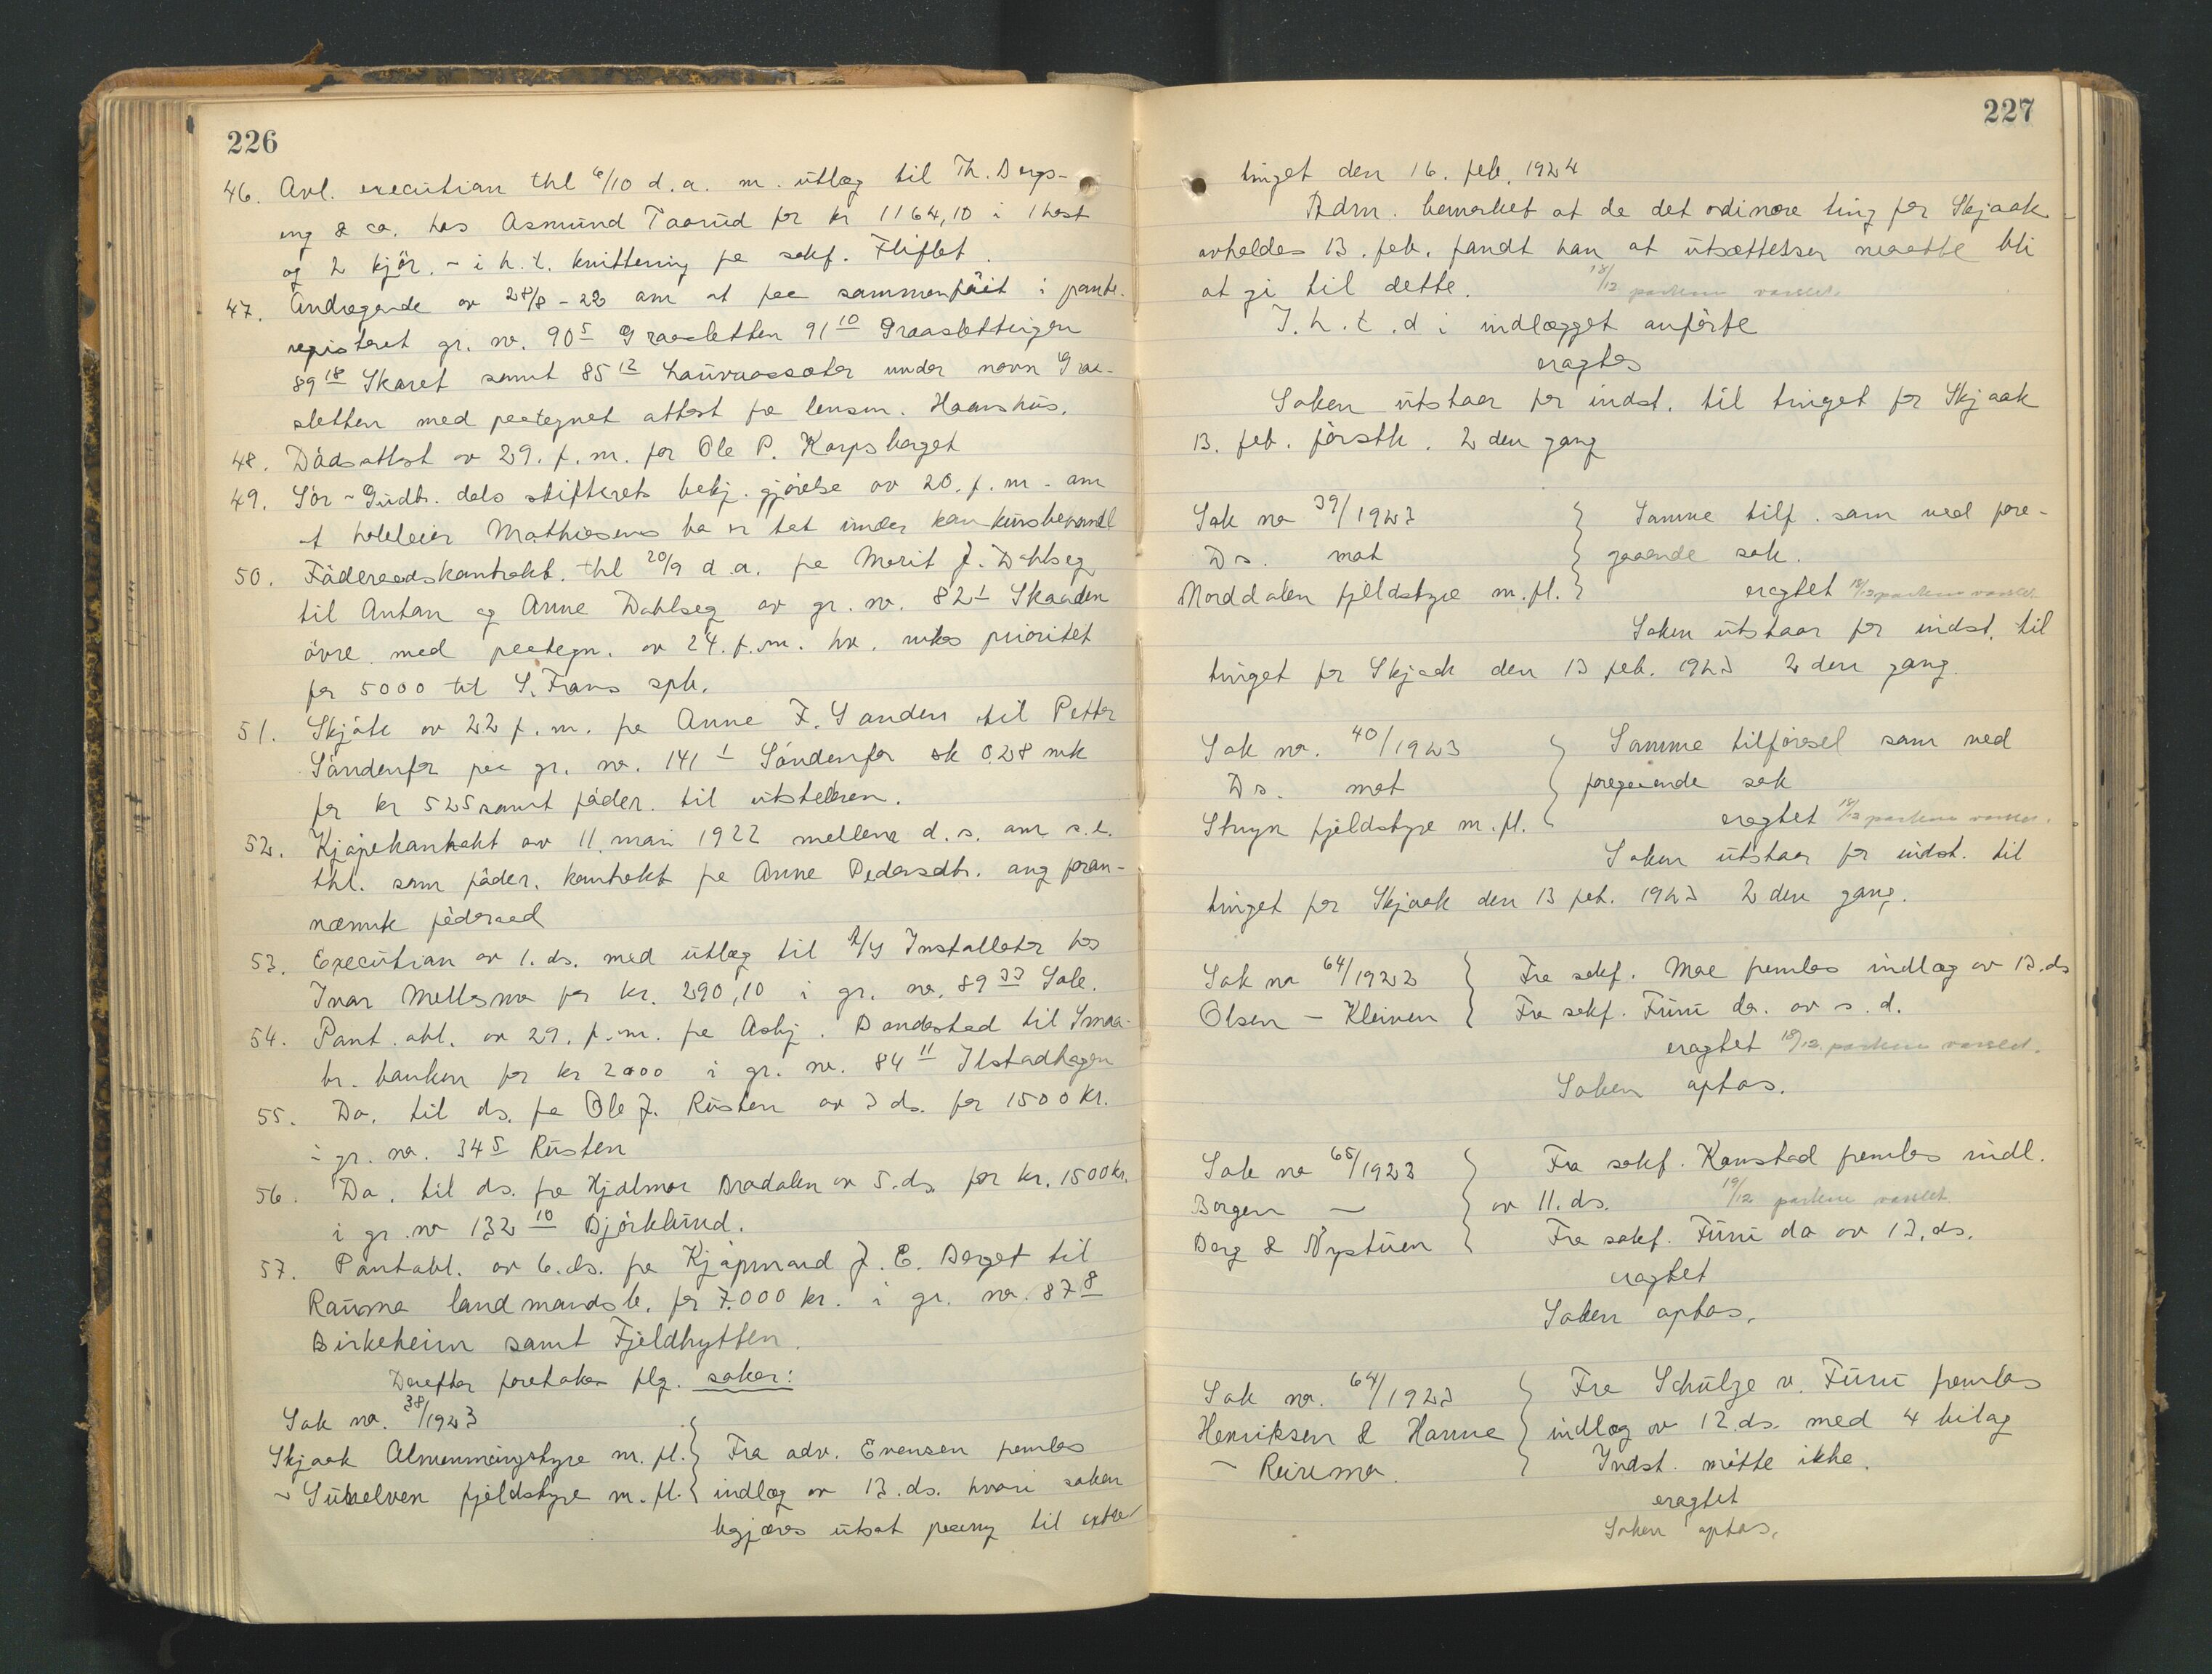 226
46. Avl. execution thl 6/10 d.a. m. utlæg til Th. Bergs-
eng & co. hos Asmund Taarud for kr 1164,10 i 1 hest
og 2 kjör. - i h. t. kvittering fra sakf. Fliflet.
47. Andragende av 28/8 - 22 om at faa sammenföit i pante-
registeret gr. nr. 90 5 Graasletten 91 10 Graaslettingen
89 18 Skaret samt 85 12 Lauvaassæter under navn Graa-
sletten med paategnet attest fra lensm. Haanshus.
48. Dödsattest av 29. f. m. for Ole P. Korpsberget
49. Sör-Gudbr. dals skifterets bekj. gjörelse av 20. f. m. om
at hoteleier Mathiesens bo er tat under konkursbehandl
50. Föderaadskontrakt. thl 20/9 d.a. fra Marit J. Dahlseg
til Anton og Anne Dahlseg av gr. nr. 82 1 Skaaden
övre med paategn. av 24. f. m. hv. vikes prioritet
for 5000 til S. Frons spb.
51. Skjöte av 22 f. m. fra Anne F. Sanden til Petter
Söndenfor paa gr. nr. 141 1 Söndenfor sk 0.28 mk
for kr 525 samt föder. til utstederen.
52. Kjöpekontrakt av 11. mars 1922 mellem d. s. om s. e.
thl. som föder. kontrakt fra Anne Pedersdtr. ang foran-
nævnte föderaad
53. Execution av 1. ds. med utlæg til A/S Installatör hos
Ivar Mellesmo for kr. 290,10 i gr. nr. 89 33 Sole.
54. Pant. obl. av 29. f. m. fra Asbj. Bondestad til Smaa-
br. banken for kr 2000 i gr. nr. 84 11 Ilstadhagen
55. Do. til ds. fra Ole J. Rusten av 3 ds. for 1500 kr.
i gr. nr. 34 5 Rusten
56. Do. til ds. fra Hjalmar Bradalen av 5. ds. for kr. 1500 kr.
i gr. nr 132 10 Björklund.
57. Pantobl. av 6. ds. fra Kjöpmand J. E. Berget til
Rauma landmandsb. for 7.000 kr. i gr. nr. 87 8
Birkeheim samt Fjeldhytten.
Derefter foretokes flg. saker:
Sak nr. 38/1923
Skjaak Almenningstyre m. fl. Fra adv. Evensen fremlas
- Sunelven fjeldstyre m. fl. indlæg av 13. ds. hvori saken
begjæres utsat til extra
227
tinget den 16. feb. 1924
Adm. bemerket at da det ordinære ting for Skjaak
avholdes 13. feb. fandt han at utsættelsen maatte bli
at gi til dette. 18/12 parterne varslet.
I. h. t. d i indlægget anförte
eragtes
Saken utstaar for indst. til tinget for Skjaak
13. feb. förstk. 2 den gang
Sak nr 39/1923 Samme tilf. som ved fore-
Ds. mot gaaende sak.
Norddalen fjeldstyre m. fl. eragtet 18/12 parterne varslet
Saken utstaar for indst. til
tinget for Skjaak den 13 feb. 1923 2 den gang.
Sak nr. 40/1923 Samme tilförsel som ved
Ds. mot foregaaende sak
Stryn fjeldstyre m. fl. eragtet 18/12 parterne varslet.
Saken utstaar for indst. til
tinget for Skjaak den 13 feb. 1923 2 den gang.
Sak nr 64/1922 Fra sakf. Moe fremlas indlæg av 13. ds
Olsen - Kleiven Fra sakf. Furu do. av s. d.
eragtet 18/12 parterne varslet.
Saken optas.
Sak nr 65/1923 Fra sakf. Konstad fremlas indl.
Borgen - av 11. ds. 19/12 parterne varslet
Berg & Nystuen Fra sakf. Furu do av 13. ds.
eragtet
Saken optas.
Sak nr. 64/1923 Fra Schulze v. Furu fremlas
Henriksen & Hanne indlæg av 12. ds. med 4 bilag
- Reiremo. Indst. mötte ikke.
eragtet
Saken optas.